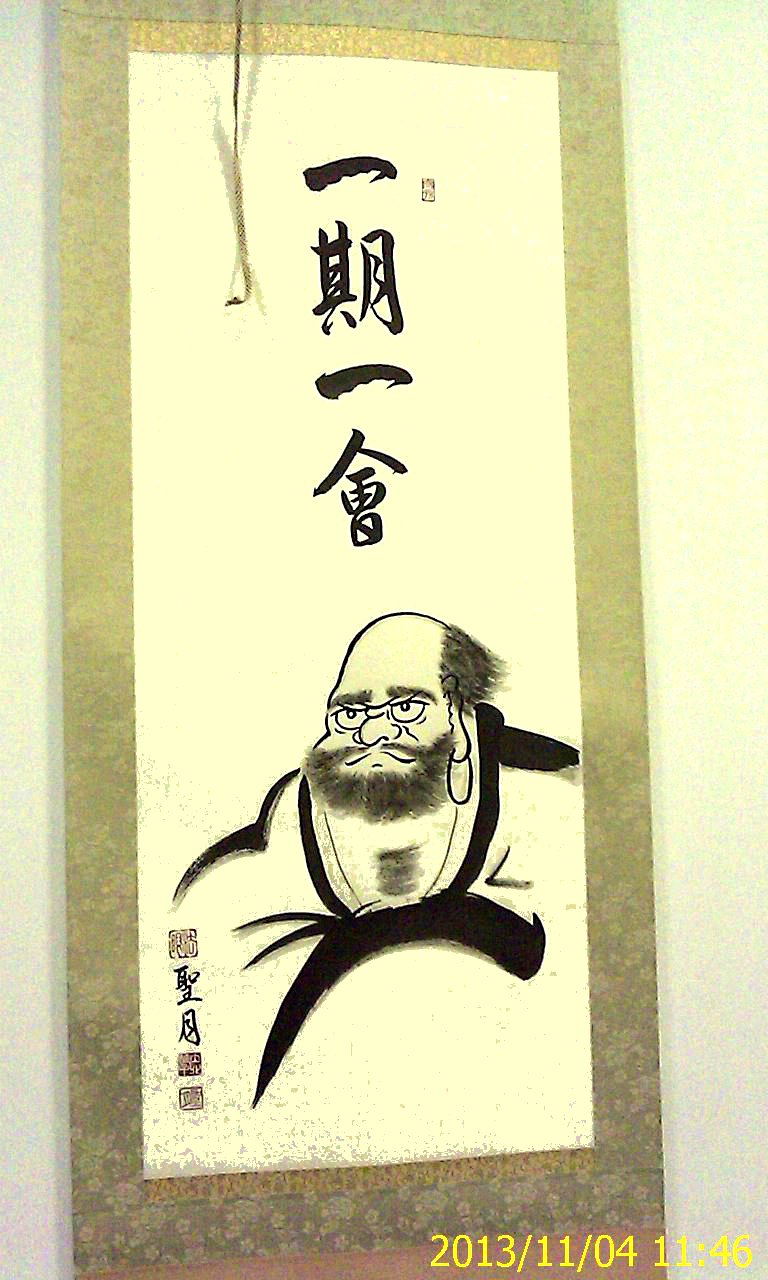 一期一會
聖月
2013/11/04 11:46